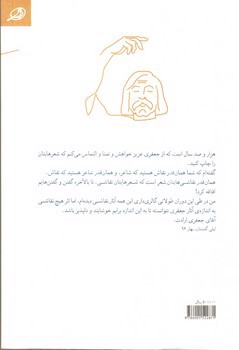 هزار و صد سال است که از جعفری عزیز خواهش و تمنا و التماس می‌کنم که شعرهایتان
را چاپ کنید.
گفته‌ام که شما همان‌قدر نقاش هستید که شاعر، و همان‌قدر شاعر هستید که نقاش.
همان‌قدر نقاشی‌هایتان شعر است که شعرهایتان نقاشی. تا بالاخره گفتن و گفتن‌هایم
افاقه کرد!
من در طی این دوران طولانی گالری‌داری این همه آثار نقاشی دیده‌ام، اما اثر هیچ نقاشی
به اندازه‌ی آثار جعفری نتوانسته تا به این اندازه برایم خوشایند و دلپذیر باشد.
آقای جعفری ارادت.
لیلی گلستان، بهار ۹۶